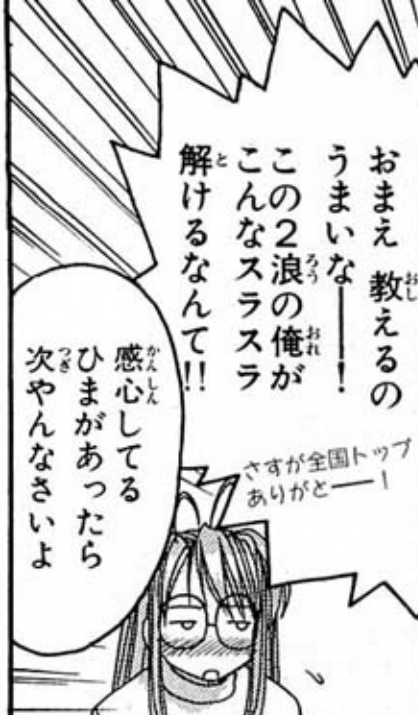 おまえ 教えるの
うまいな――!
この2浪の俺が
こんなスラスラ
解けるなんて!!
さすが全国トップ
ありがと――!
感心してる
ひまがあったら
次やんなさいよ